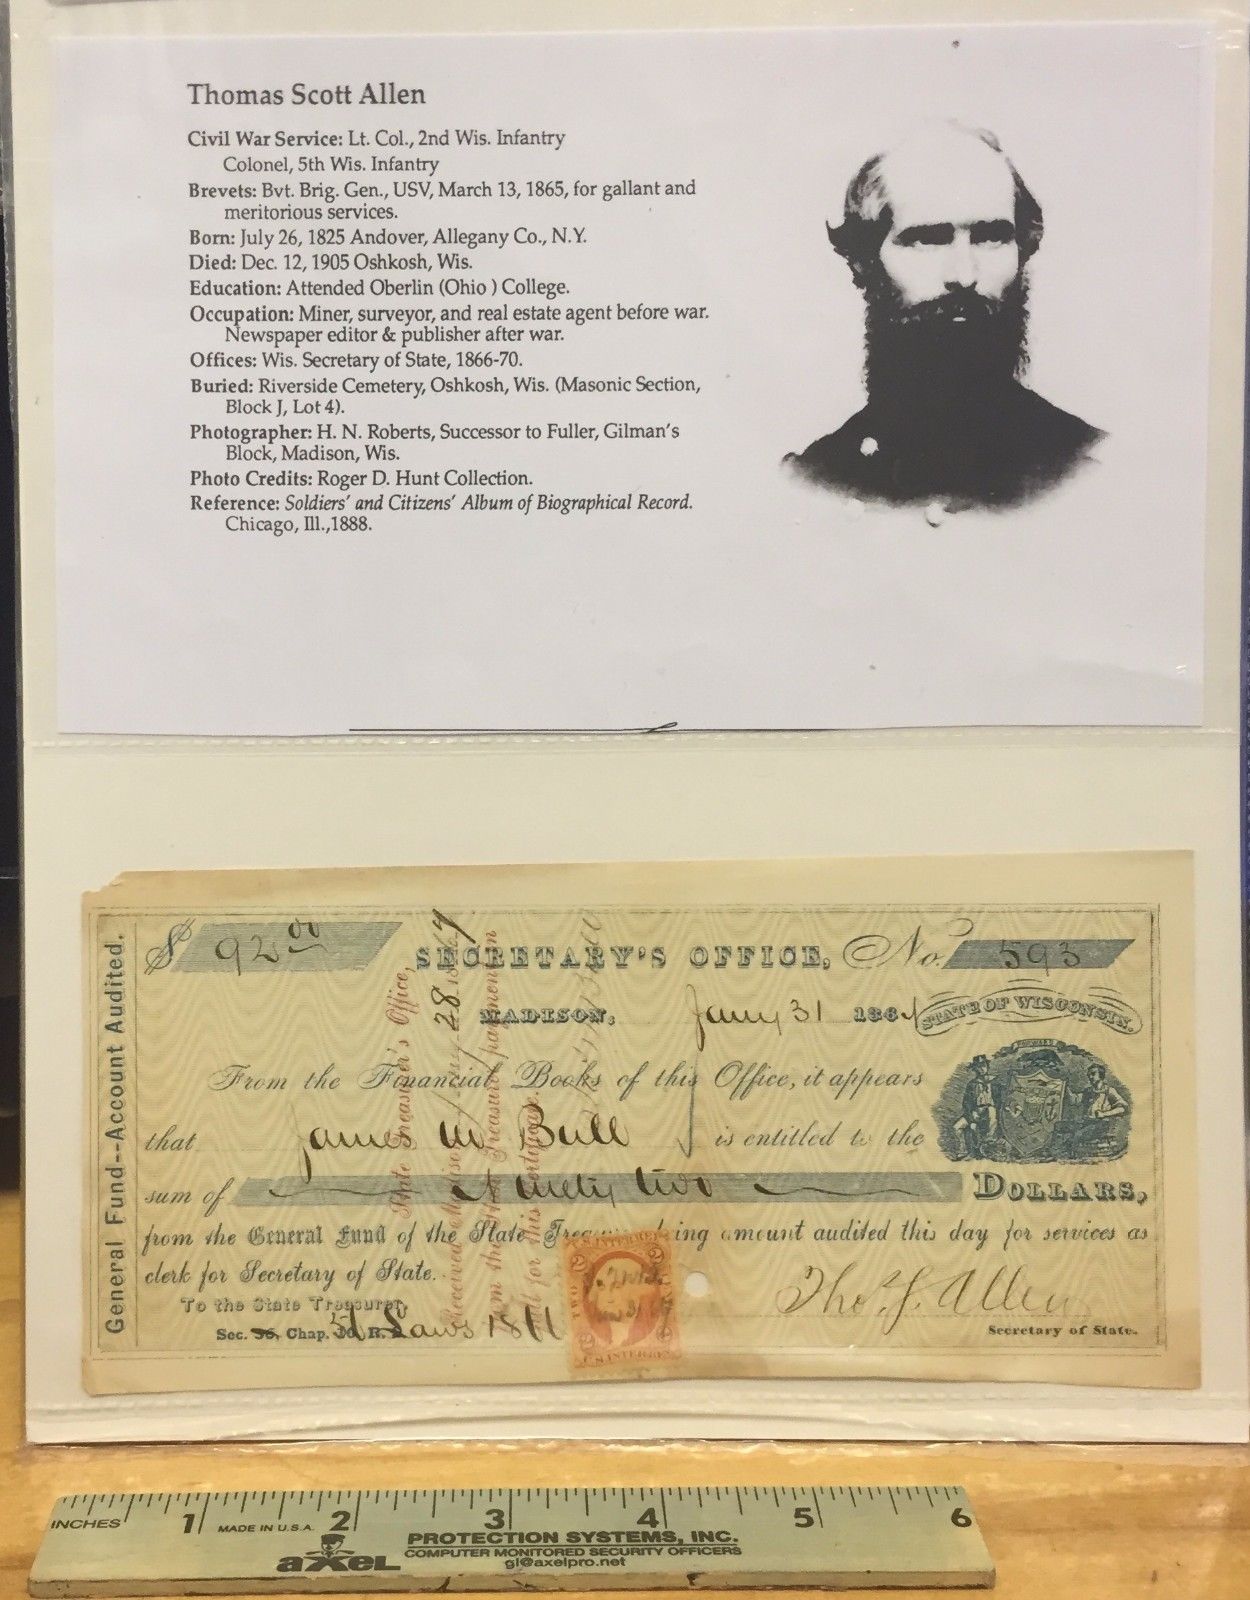 Thomas Scott Allen
Civil War Service: Lt. Col., 2nd Wis. Infantry
Colonel, 5th Wis. Infantry
Brevets: Bvt. Brig. Gen., USV, March 13, 1865, for gallant and
meritorious services.
Born: July 26, 1825 Andover, Allegany Co., N.Y.
Died: Dec. 12, 1905 Oshkosh, Wis.
Education: Attended Oberlin (Ohio ) College.
Occupation: Miner, surveyor, and real estate agent before war.
Newspaper editor & publisher after war.
Offices: Wis. Secretary of State, 1866-70.
Buried: Riverside Cemetery, Oshkosh, Wis. (Masonic Section,
Block J, Lot 4).
Photographer: H. N. Roberts, Successor to Fuller, Gilman's
Block, Madison, Wis.
Photo Credits: Roger D. Hunt Collection.
Reference: Soldiers' and Citizens' Album of Biographical Record.
Chicago, Ill.,1888.
General Fund--Account Audited.
$ 92 00
SECRETARY'S OFFICE, No. 593
MADISON, Jany 31 186
STATE OF WISCONSIN.
From the Financial Books of this Office, it appears
that James W Bull is entitled to the
sum of Ninety two DOLLARS,
from the General Fund of the State Treasury being amount audited this day for services as
clerk for Secretary of State.
To the State Treasurer,
Sec. 36, Chap. Laws
Tho. S. Allen
Secretary of State.
State Treasurer's Office,
28
from the State Treasurer payment in
full for this certificate.
U.S. INTER. REV.
INCHES 1 2 3 4 5 6
MADE IN U.S.A.
axel
PROTECTION SYSTEMS, INC.
COMPUTER MONITORED SECURITY OFFICERS
gl@axelpro.net